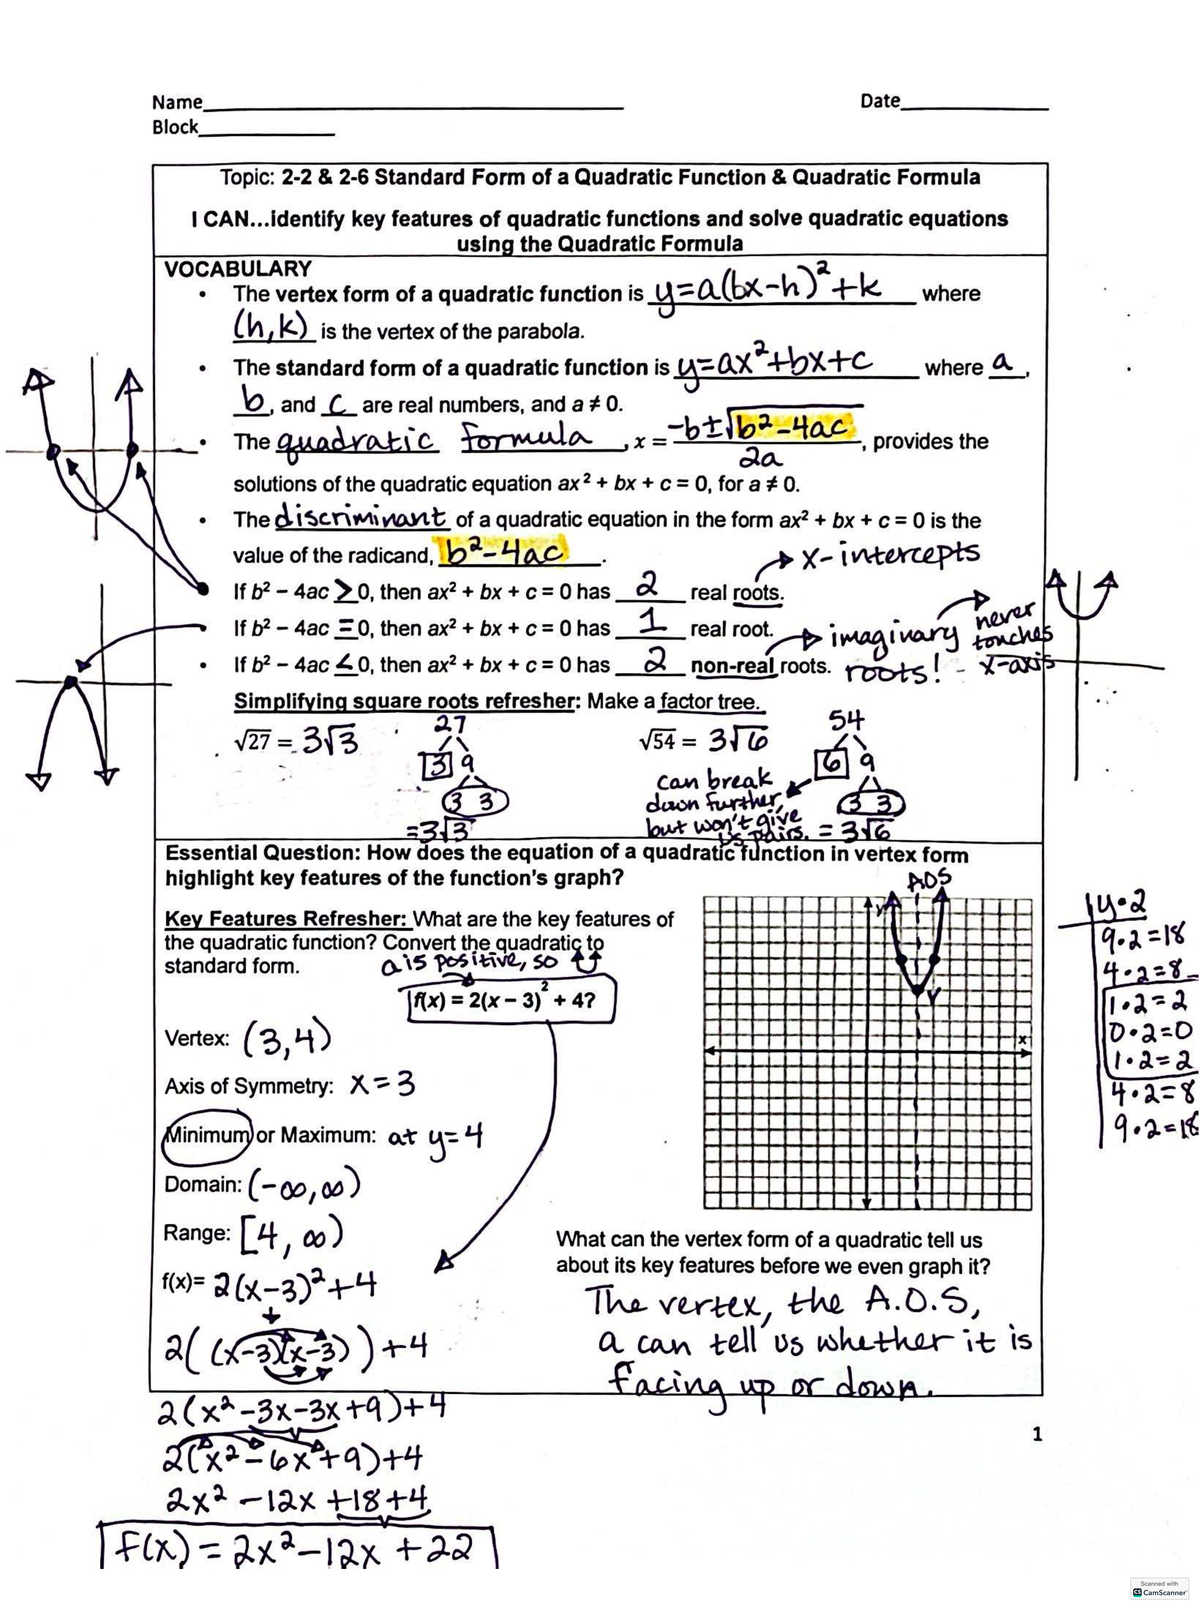 Name
Date
Block
Topic: 2-2 & 2-6 Standard Form of a Quadratic Function & Quadratic Formula
I CAN...identify key features of quadratic functions and solve quadratic equations
using the Quadratic Formula
VOCABULARY
• The vertex form of a quadratic function is y=a(bx-h)²+k where
(h,k) is the vertex of the parabola.
• The standard form of a quadratic function is y=ax²+bx+c where a,
b, and c are real numbers, and a ≠ 0.
• The quadratic formula, x = -b±√b²-4ac / 2a, provides the
solutions of the quadratic equation ax² + bx + c = 0, for a ≠ 0.
• The discriminant of a quadratic equation in the form ax² + bx + c = 0 is the
value of the radicand, b²-4ac.
→ x-intercepts
• If b² - 4ac > 0, then ax² + bx + c = 0 has 2 real roots.
• If b² - 4ac = 0, then ax² + bx + c = 0 has 1 real root.
• If b² - 4ac < 0, then ax² + bx + c = 0 has 2 non-real roots.
→ imaginary roots! - never touches x-axis
Simplifying square roots refresher: Make a factor tree.
√27 = 3√3
27
3 9
3 3
=3√3
√54 = 3√6
54
6 9
3 3
= 3√6
can break
down further,
but won't give
us pairs.
Essential Question: How does the equation of a quadratic function in vertex form
highlight key features of the function's graph?
AOS
Key Features Refresher: What are the key features of
the quadratic function? Convert the quadratic to
standard form.
a is positive, so
f(x) = 2(x – 3)² + 4?
y
V
x
y•2
9•2=18
4•2=8
1•2=2
0•2=0
1•2=2
4•2=8
9•2=18
Vertex: (3,4)
Axis of Symmetry: x=3
Minimum or Maximum: at y=4
Domain: (-∞,∞)
Range: [4, ∞)
f(x)= 2(x-3)²+4
2((x-3)(x-3))+4
2(x²-3x-3x+9)+4
2(x²-6x+9)+4
2x²-12x+18+4
f(x)=2x²-12x+22
What can the vertex form of a quadratic tell us
about its key features before we even graph it?
The vertex, the A.O.S,
a can tell us whether it is
facing up or down.
1
Scanned with
CS CamScanner